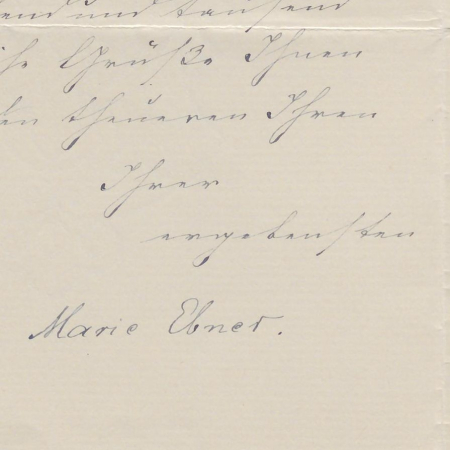 und tausend
Grüße Ihnen
den theueren Ihren
Ihrer
ergebensten
Marie Ebner.